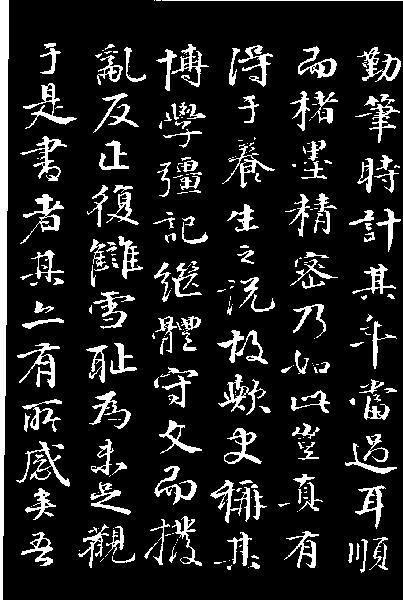 勤筆時計其年當過耳順
而楮墨精密乃如此豈真有
得于養生之説故歟史稱其
博學彊記繼體守文而撥
亂反正復讎雪恥為未足觀
于是書者其亦有所感夫吾